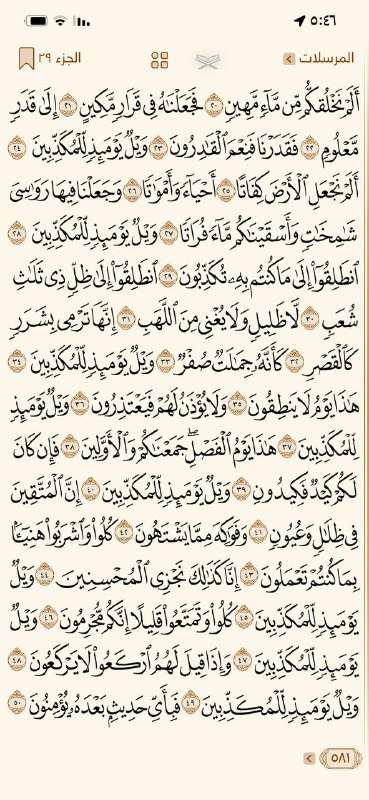 ٥:٤٦
المرسلات
الجزء ٢٩
أَلَمْ نَخْلُقكُّم مِّن مَّآءٍ مَّهِينٍ ٢٠ فَجَعَلْنَٰهُ فِى قَرَارٍ مَّكِينٍ ٢١ إِلَىٰ قَدَرٍ
مَّعْلُومٍ ٢٢ فَقَدَرْنَا فَنِعْمَ ٱلْقَٰدِرُونَ ٢٣ وَيْلٌ يَوْمَئِذٍ لِّلْمُكَذِّبِينَ ٢٤
أَلَمْ نَجْعَلِ ٱلْأَرْضَ كِفَاتًا ٢٥ أَحْيَآءً وَأَمْوَٰتًا ٢٦ وَجَعَلْنَا فِيهَا رَوَٰسِىَ
شَٰمِخَٰتٍ وَأَسْقَيْنَٰكُم مَّآءً فُرَاتًا ٢٧ وَيْلٌ يَوْمَئِذٍ لِّلْمُكَذِّبِينَ ٢٨
ٱنطَلِقُوٓا۟ إِلَىٰ مَا كُنتُم بِهِۦ تُكَذِّبُونَ ٢٩ ٱنطَلِقُوٓا۟ إِلَىٰ ظِلٍّ ذِى ثَلَٰثِ
شُعَبٍ ٣٠ لَّا ظَلِيلٍ وَلَا يُغْنِى مِنَ ٱللَّهَبِ ٣١ إِنَّهَا تَرْمِى بِشَرَرٍ
كَٱلْقَصْرِ ٣٢ كَأَنَّهُۥ جِمَٰلَتٌ صُفْرٌ ٣٣ وَيْلٌ يَوْمَئِذٍ لِّلْمُكَذِّبِينَ ٣٤
هَٰذَا يَوْمُ لَا يَنطِقُونَ ٣٥ وَلَا يُؤْذَنُ لَهُمْ فَيَعْتَذِرُونَ ٣٦ وَيْلٌ يَوْمَئِذٍ
لِّلْمُكَذِّبِينَ ٣٧ هَٰذَا يَوْمُ ٱلْفَصْلِ ۖ جَمَعْنَٰكُمْ وَٱلْأَوَّلِينَ ٣٨ فَإِن كَانَ
لَكُمْ كَيْدٌ فَكِيدُونِ ٣٩ وَيْلٌ يَوْمَئِذٍ لِّلْمُكَذِّبِينَ ٤٠ إِنَّ ٱلْمُتَّقِينَ
فِى ظِلَٰلٍ وَعُيُونٍ ٤١ وَفَوَٰكِهَ مِمَّا يَشْتَهُونَ ٤٢ كُلُوا۟ وَٱشْرَبُوا۟ هَنِيٓـًٔۢا
بِمَا كُنتُمْ تَعْمَلُونَ ٤٣ إِنَّا كَذَٰلِكَ نَجْزِى ٱلْمُحْسِنِينَ ٤٤ وَيْلٌ
يَوْمَئِذٍ لِّلْمُكَذِّبِينَ ٤٥ كُلُوا۟ وَتَمَتَّعُوا۟ قَلِيلًا إِنَّكُم مُّجْرِمُونَ ٤٦ وَيْلٌ
يَوْمَئِذٍ لِّلْمُكَذِّبِينَ ٤٧ وَإِذَا قِيلَ لَهُمُ ٱرْكَعُوا۟ لَا يَرْكَعُونَ ٤٨
وَيْلٌ يَوْمَئِذٍ لِّلْمُكَذِّبِينَ ٤٩ فَبِأَىِّ حَدِيثٍۭ بَعْدَهُۥ يُؤْمِنُونَ ٥٠
٥٨١